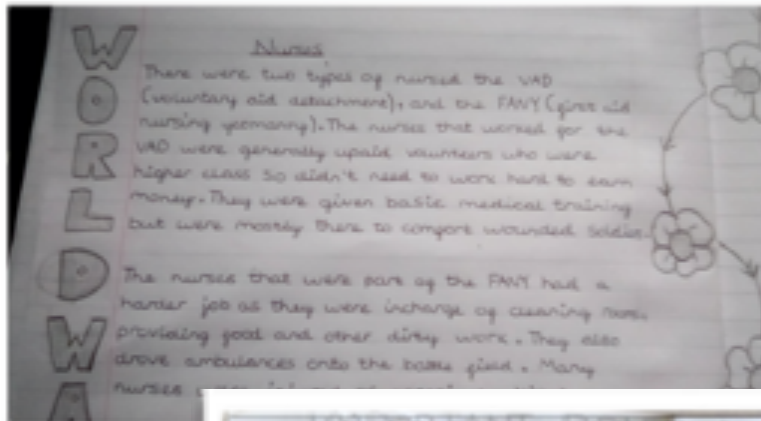 W
O
R
L
D
W
A
Nurses
There were two types of nursed the VAD
(voluntary aid detachment), and the FANY (first aid
nursing yeomanny). The nurses that worked for the
VAD were generally upaid vounteers who were
higher class so didn't need to work hard to earn
money. They were given basic medical training
but were mostly there to comfore wounded
The nurses that were part of the FANY had a
harder job as they were incharge of cleaning
providing food and other dirty work. They also
drove ambulances onto the battle field. Many
nurses